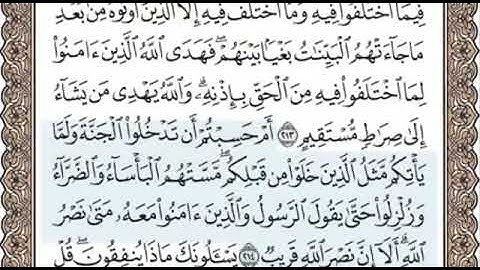 فِيمَا ٱخْتَلَفُوا۟ فِيهِ وَمَا ٱخْتَلَفَ فِيهِ إِلَّا ٱلَّذِينَ أُوتُوهُ مِنۢ بَعْدِ
مَا جَآءَتْهُمُ ٱلْبَيِّنَٰتُ بَغْيًۢا بَيْنَهُمْ ۖ فَهَدَى ٱللَّهُ ٱلَّذِينَ ءَامَنُوا۟
لِمَا ٱخْتَلَفُوا۟ فِيهِ مِنَ ٱلْحَقِّ بِإِذْنِهِۦ ۗ وَٱللَّهُ يَهْدِى مَن يَشَآءُ
إِلَىٰ صِرَٰطٍ مُّسْتَقِيمٍ ٢١٣ أَمْ حَسِبْتُمْ أَن تَدْخُلُوا۟ ٱلْجَنَّةَ وَلَمَّا
يَأْتِكُم مَّثَلُ ٱلَّذِينَ خَلَوْا۟ مِن قَبْلِكُم ۖ مَّسَّتْهُمُ ٱلْبَأْسَآءُ وَٱلضَّرَّآءُ
وَزُلْزِلُوا۟ حَتَّىٰ يَقُولَ ٱلرَّسُولُ وَٱلَّذِينَ ءَامَنُوا۟ مَعَهُۥ مَتَىٰ نَصْرُ
ٱللَّهِ ۗ أَلَآ إِنَّ نَصْرَ ٱللَّهِ قَرِيبٌ ٢١٤ يَسْـَٔلُونَكَ مَاذَا يُنفِقُونَ ۖ قُلْ